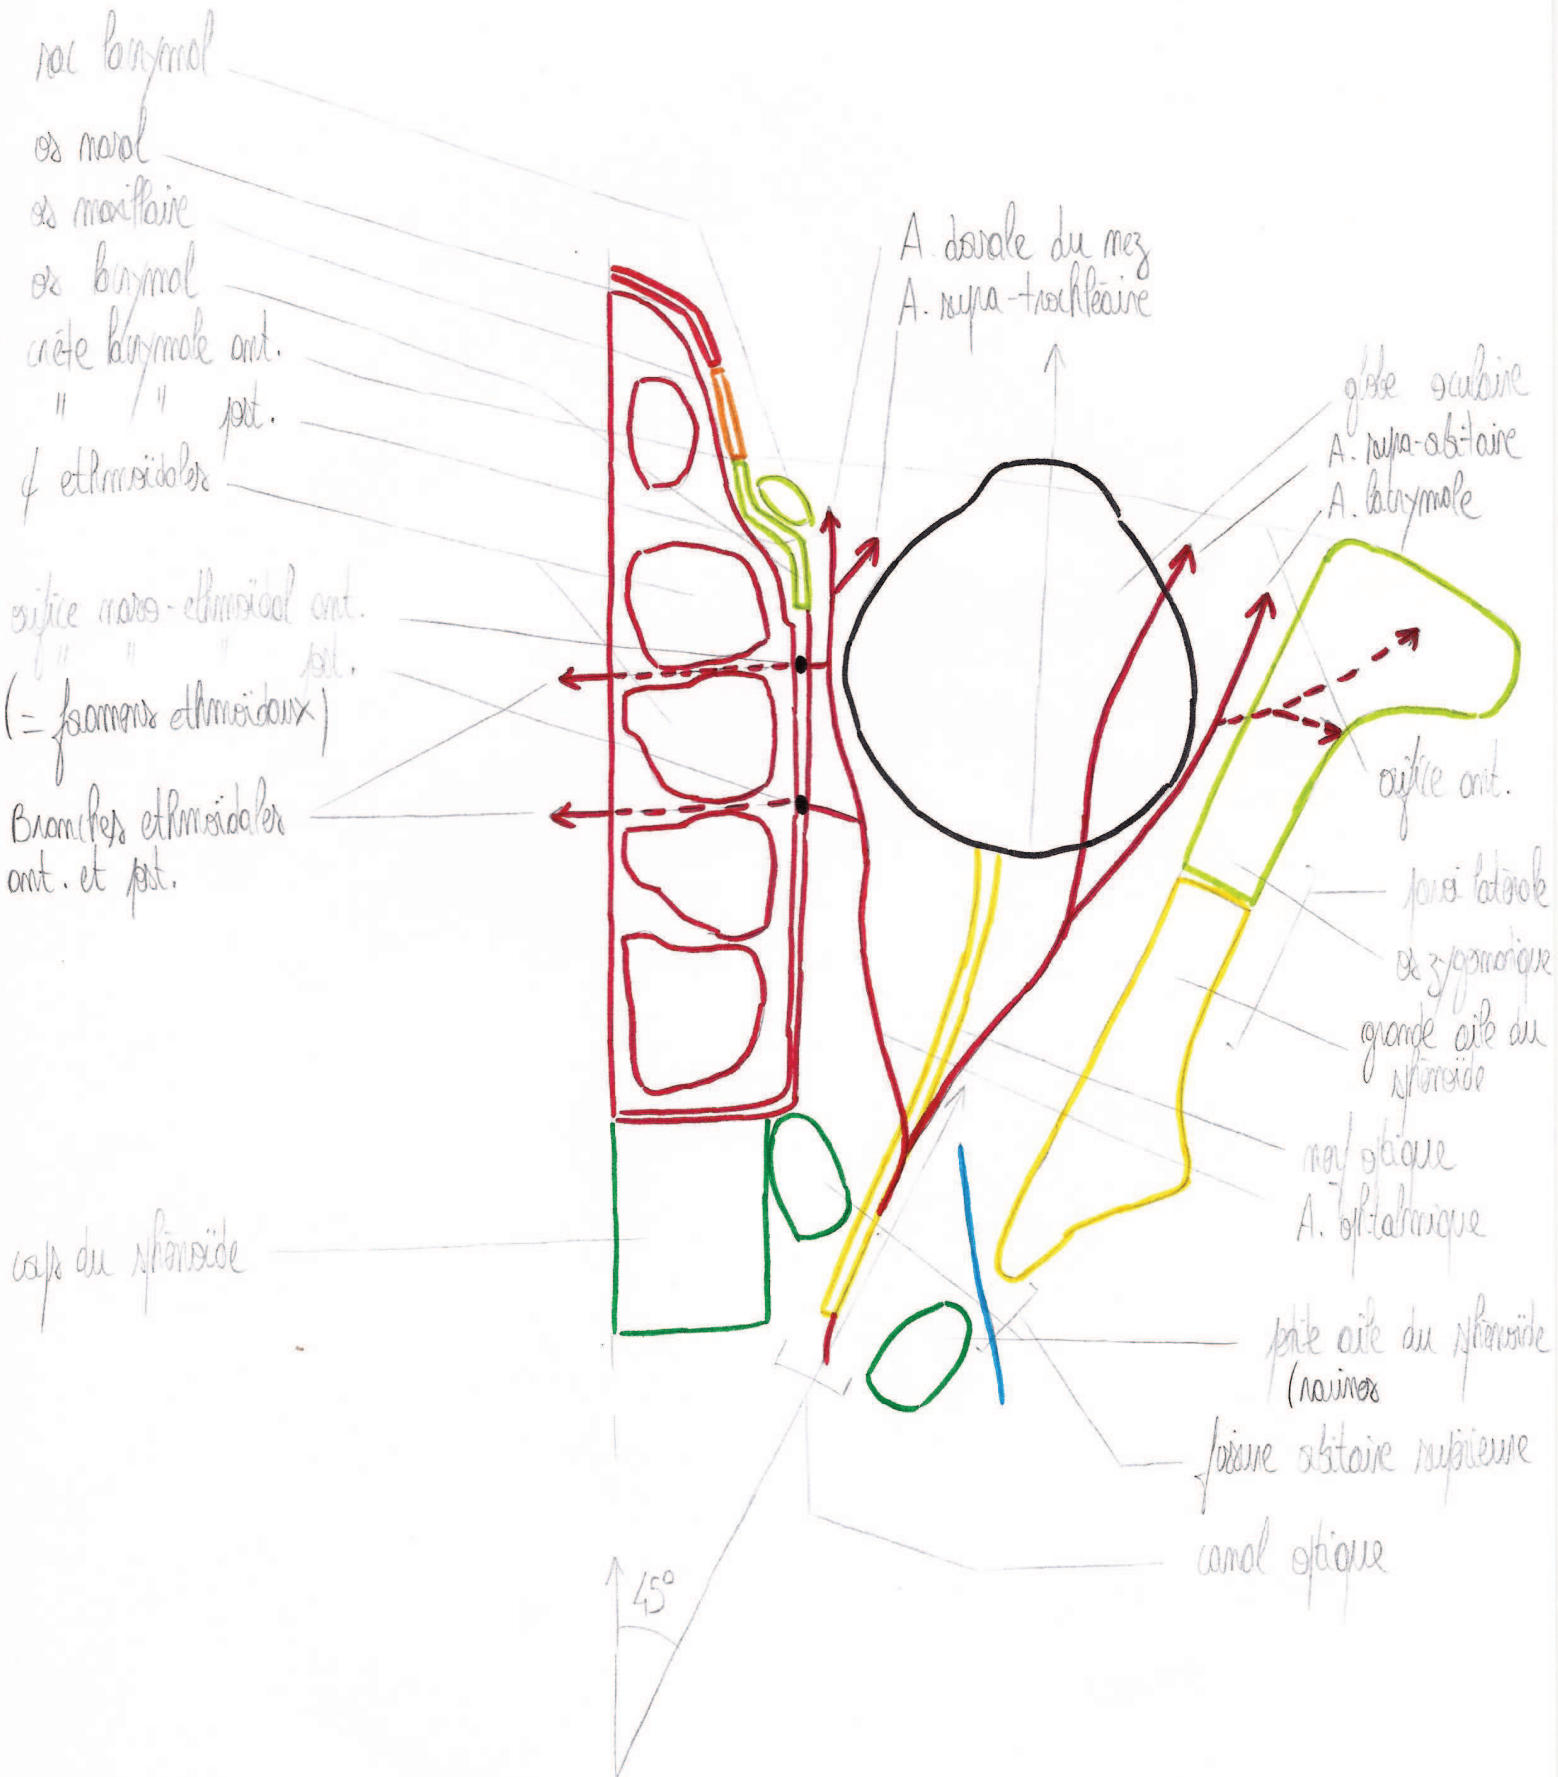 sac lacrymal
os nasal
os maxillaire
os lacrymal
crête lacrymale ant.
" " post.
¢ ethmoïdales
orifice naso-ethmoïdal ant.
" " " post.
(= foramens ethmoïdaux)
Branches ethmoïdales
ant. et post.
corps du sphénoïde
A. dorsale du nez
A. supra-trochléaire
globe oculaire
A. supra-orbitaire
A. lacrymale
orifice ant.
paroi latérale
os zygomatique
grande aile du
sphénoïde
nerf optique
A. ophtalmique
petite aile du sphénoïde
(racines
fissure orbitaire supérieure
canal optique
45°